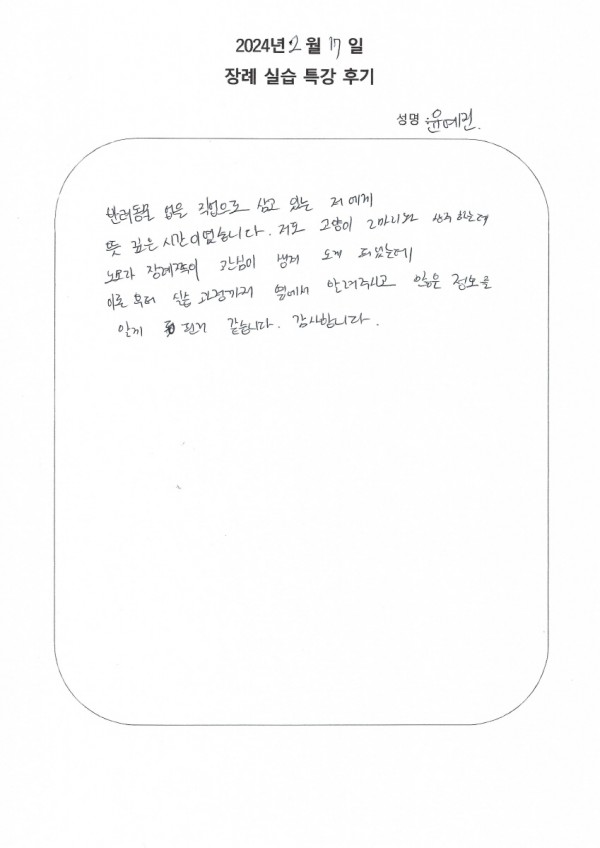 2024년 2 월 17 일
장례 실습 특강 후기
성명 윤예진
반려동물 업을 직업으로 삼고 있는 저에게
뜻 깊은 시간이였습니다. 저도 고양이 2마리와
장례쪽이 관심이 생겨 오게 되었는데
이론 부터 실습 과정까지 옆에서 알려주시고 많은 정보를
알게 된거 같습니다. 감사합니다.